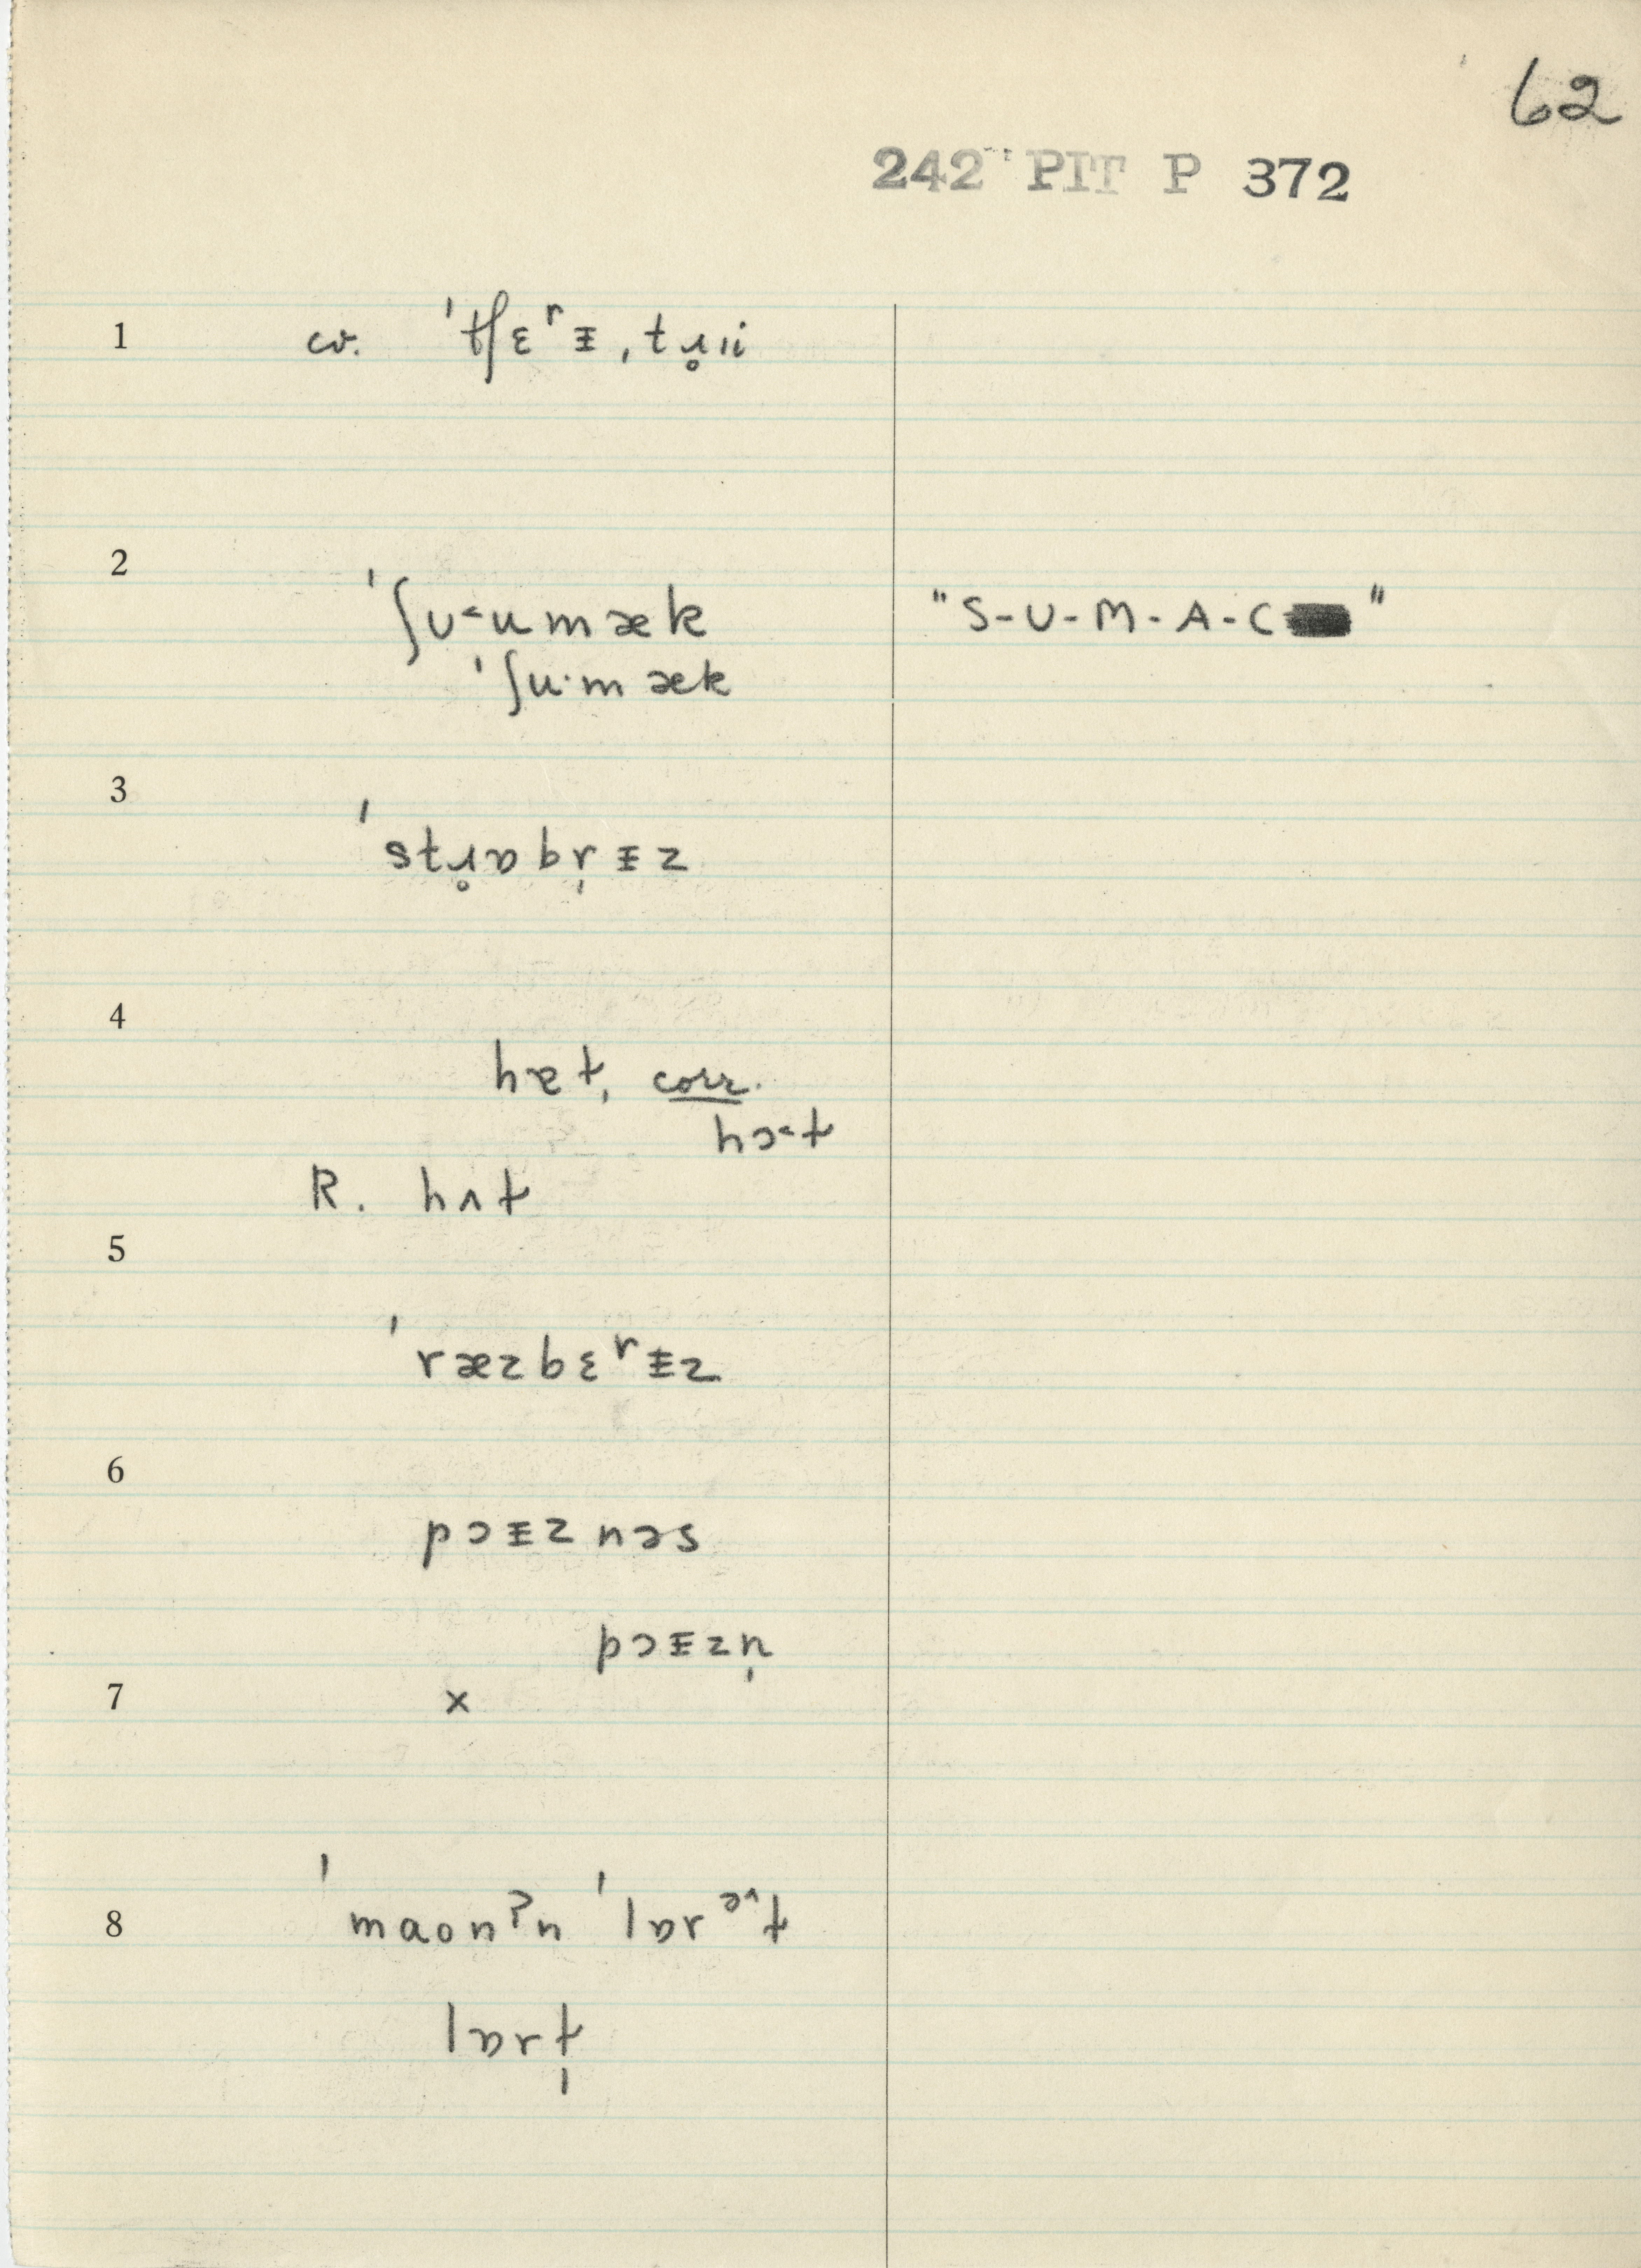 62
242 PIT P 372
1 cv. ˈtʃɛʳɨ ˌtɹ̥ɪi
2 ˈʃᴜ˂umæk "S-U-M-A-C"
ˈʃu·mæk
3 ˈstɹ̥ɒbr̩ɨz
4 hɐt̩, corr.
hɔ˂t
R. hʌt
5 ˈræzbɛʳɨz
6 pɔɨznəs
pɔɨzn̩
7 x
8 ˈmaonʔn ˈlɒrəˆt
lɒrt̩